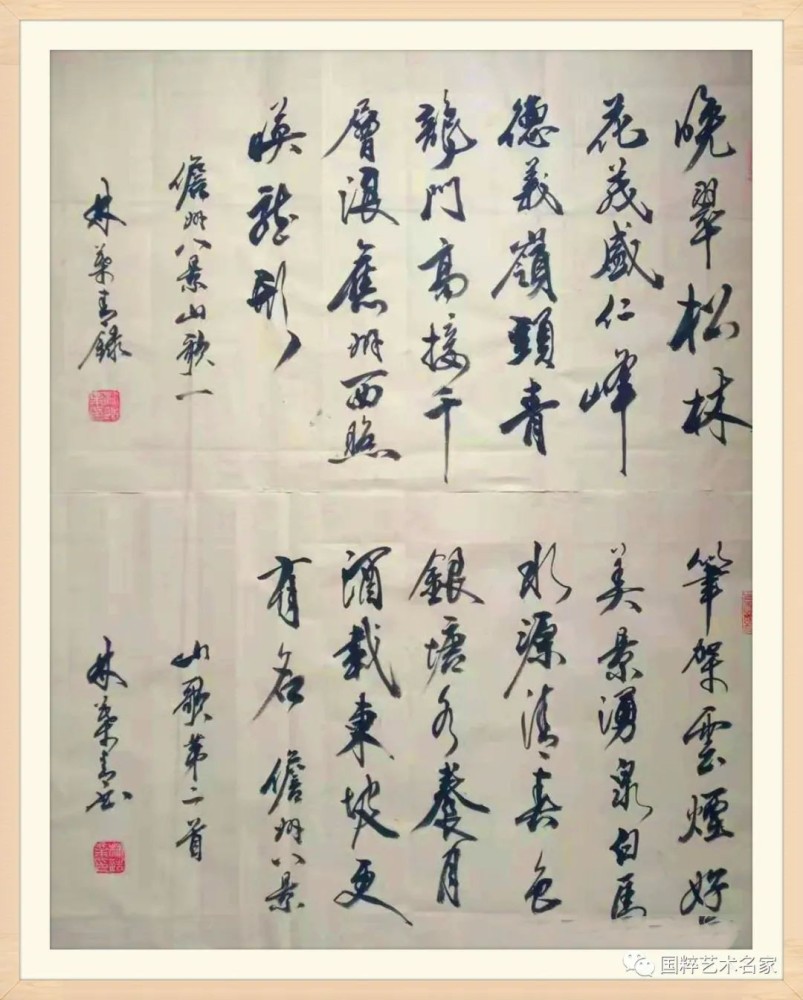 晚翠松林
花茂盛仁峰
德義嶺頭青
龍門高接千
層浪舊州西照
映龍形
儋州八景山歌一
林青錄
筆架雲煙好
美景湧泉白馬
水源清春色
銀塘養月
酒載東坡更
有名 儋州八景
山歌第二首
林青書
国粹艺术名家